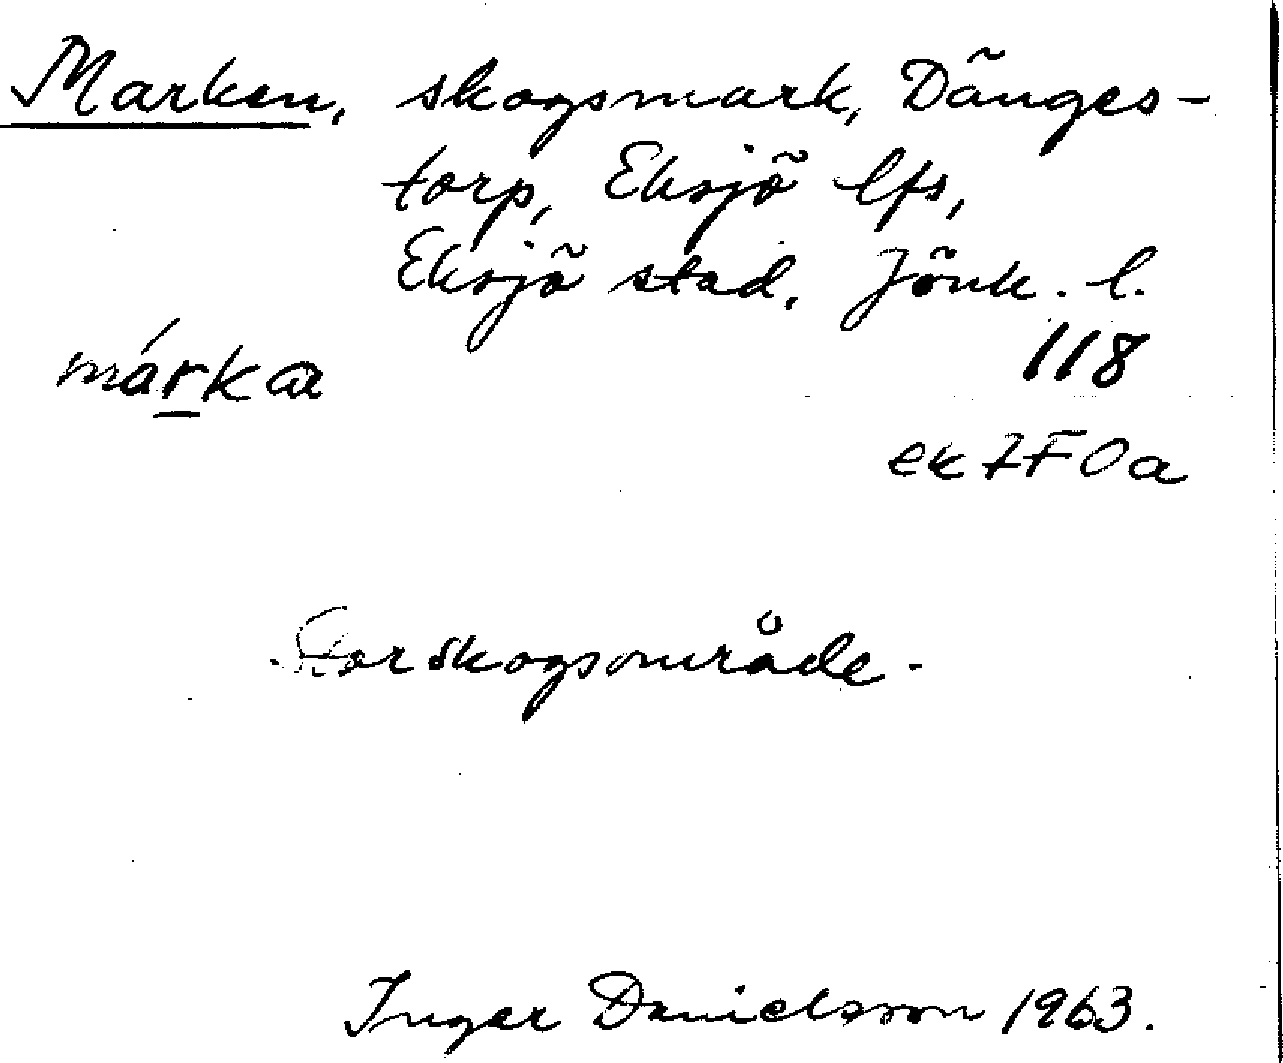 Marken, skogsmark, Dänges-
torp, Eksjö lfs,
Eksjö stad, Jönk. l.
márka 118
ek 7F0a
Stor skogsområde.
Inger Danielsson 1963.